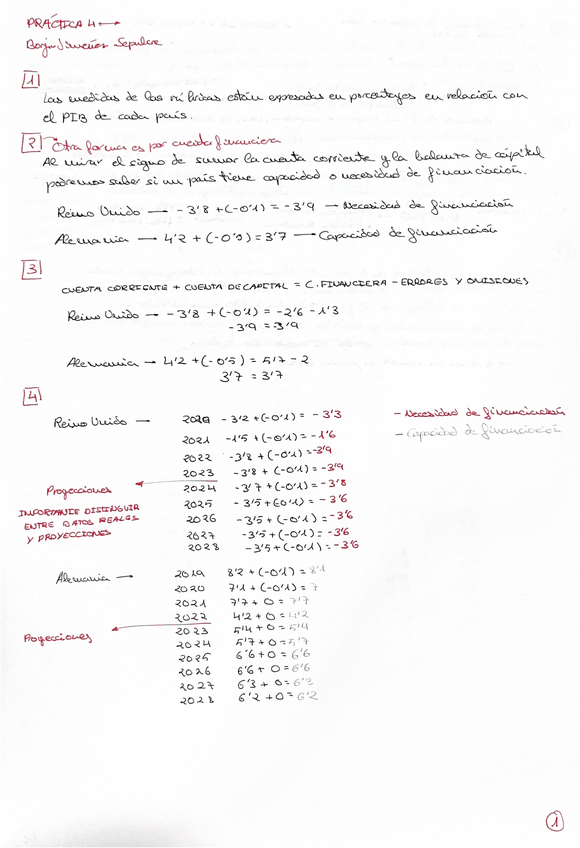 PRÁCTICA 4
Borja Jiménez
1
Las medidas de las rúbricas están expresadas en porcentajes en relación con
el PIB de cada país.
2 Otra forma es por cuenta financiera
Al mirar el signo de sumar la cuenta corriente y la balanza de cápital
podremos saber si un país tiene capacidad o necesidad de financiación.
Reino Unido — -3'8 + (-0'1) = -3'9 — Necesidad de financiación
Alemania — 4'2 + (-0'5) = 3'7 — Capacidad de financiación
3
CUENTA CORRIENTE + CUENTA DE CAPITAL = C. FINANCIERA - ERRORES Y OMISIONES
Reino Unido → -3'8 + (-0'1) = -2'6 - 1'3
-3'9 = -3'9
Alemania → 4'2 + (-0'5) = 5'7 - 2
3'7 = 3'7
4
Reino Unido → 2020 -3'2 + (-0'1) = -3'3 - Necesidad de financiación
2021 -1'5 + (-0'1) = -1'6 - Capacidad de financiación
2022 -3'8 + (-0'1) = -3'9
2023 -3'8 + (-0'1) = -3'9
Proyecciones 2024 -3'7 + (-0'1) = -3'8
IMPORTANTE DISTINGUIR 2025 -3'5 + (-0'1) = -3'6
ENTRE DATOS REALES 2026 -3'5 + (-0'1) = -3'6
Y PROYECCIONES 2027 -3'5 + (-0'1) = -3'6
2028 -3'5 + (-0'1) = -3'6
Alemania → 2019 8'2 + (-0'1) = 8'1
2020 7'1 + (-0'1) = 7
2021 7'7 + 0 = 7'7
2022 4'2 + 0 = 4'2
Proyecciones 2023 5'4 + 0 = 5'4
2024 5'7 + 0 = 5'7
2025 6'6 + 0 = 6'6
2026 6'6 + 0 = 6'6
2027 6'3 + 0 = 6'3
2028 6'2 + 0 = 6'2
1